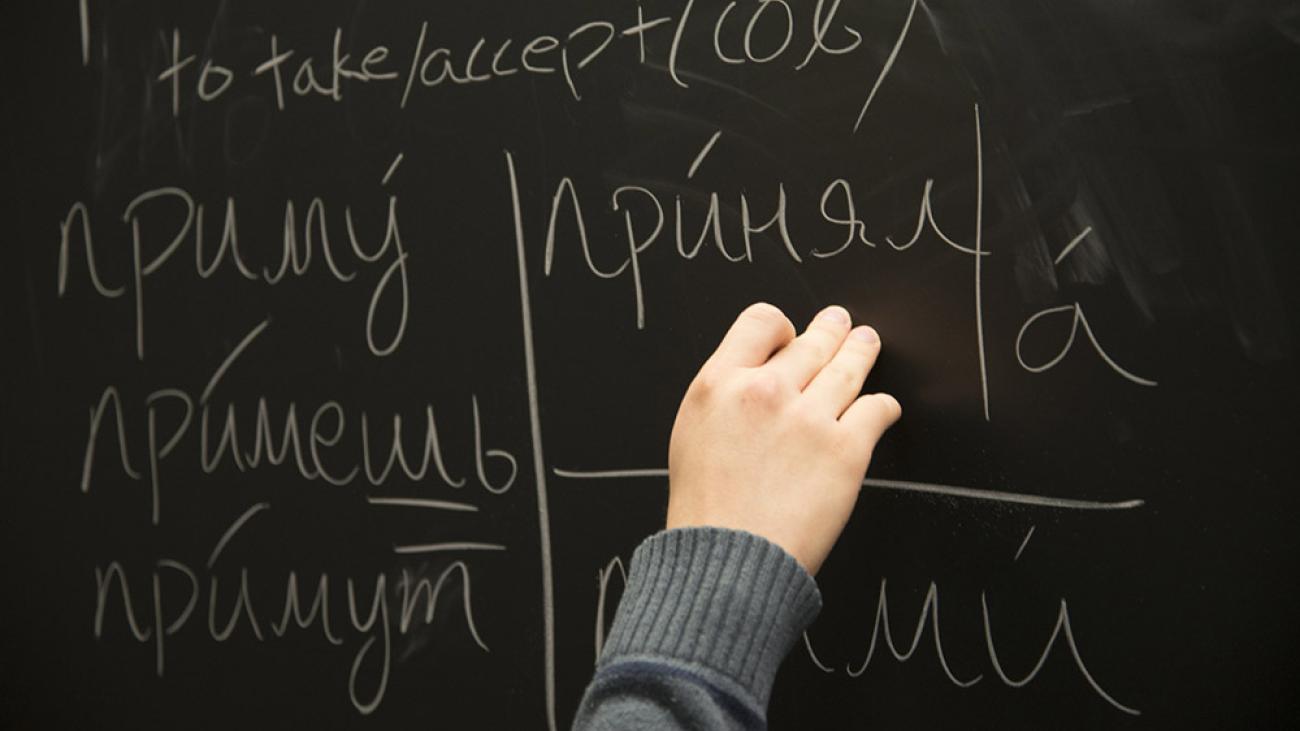 to take/accept (сов)
приму́ при́нял
а́
при́мешь
при́мут